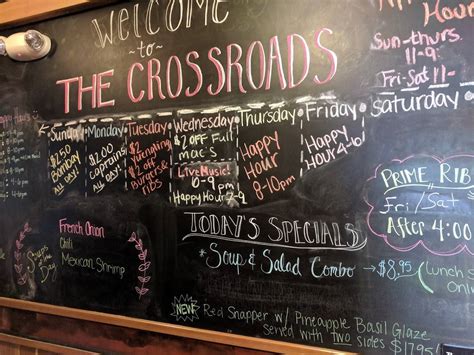 WELCOME
to
THE CROSSROADS
Hour
Sun-thurs
11-9
Fri-Sat 11-
Saturday
Sunday
$2.50
Bombay
ALL DAY!
Monday
$2.00
Captains
ALL DAY!
Tuesday
$2
Yuengling
$2 off
Burgers &
ribs
Wednesday
$2 off Full
mac's
Live Music!
6-9 pm
Happy Hour
Thursday
Happy
Hour
8-10pm
Friday
Happy
Hour 4-6
PRIME RIB
Fri/Sat
After 4:00
Soups
of the
Day
French Onion
Chili
Mexican Shrimp
TODAY'S SPECIALS
*Soup & Salad Combo → $8.95
(Lunch
Only
NEW Red Snapper w/ Pineapple Basil Glaze
served with two sides $17.95